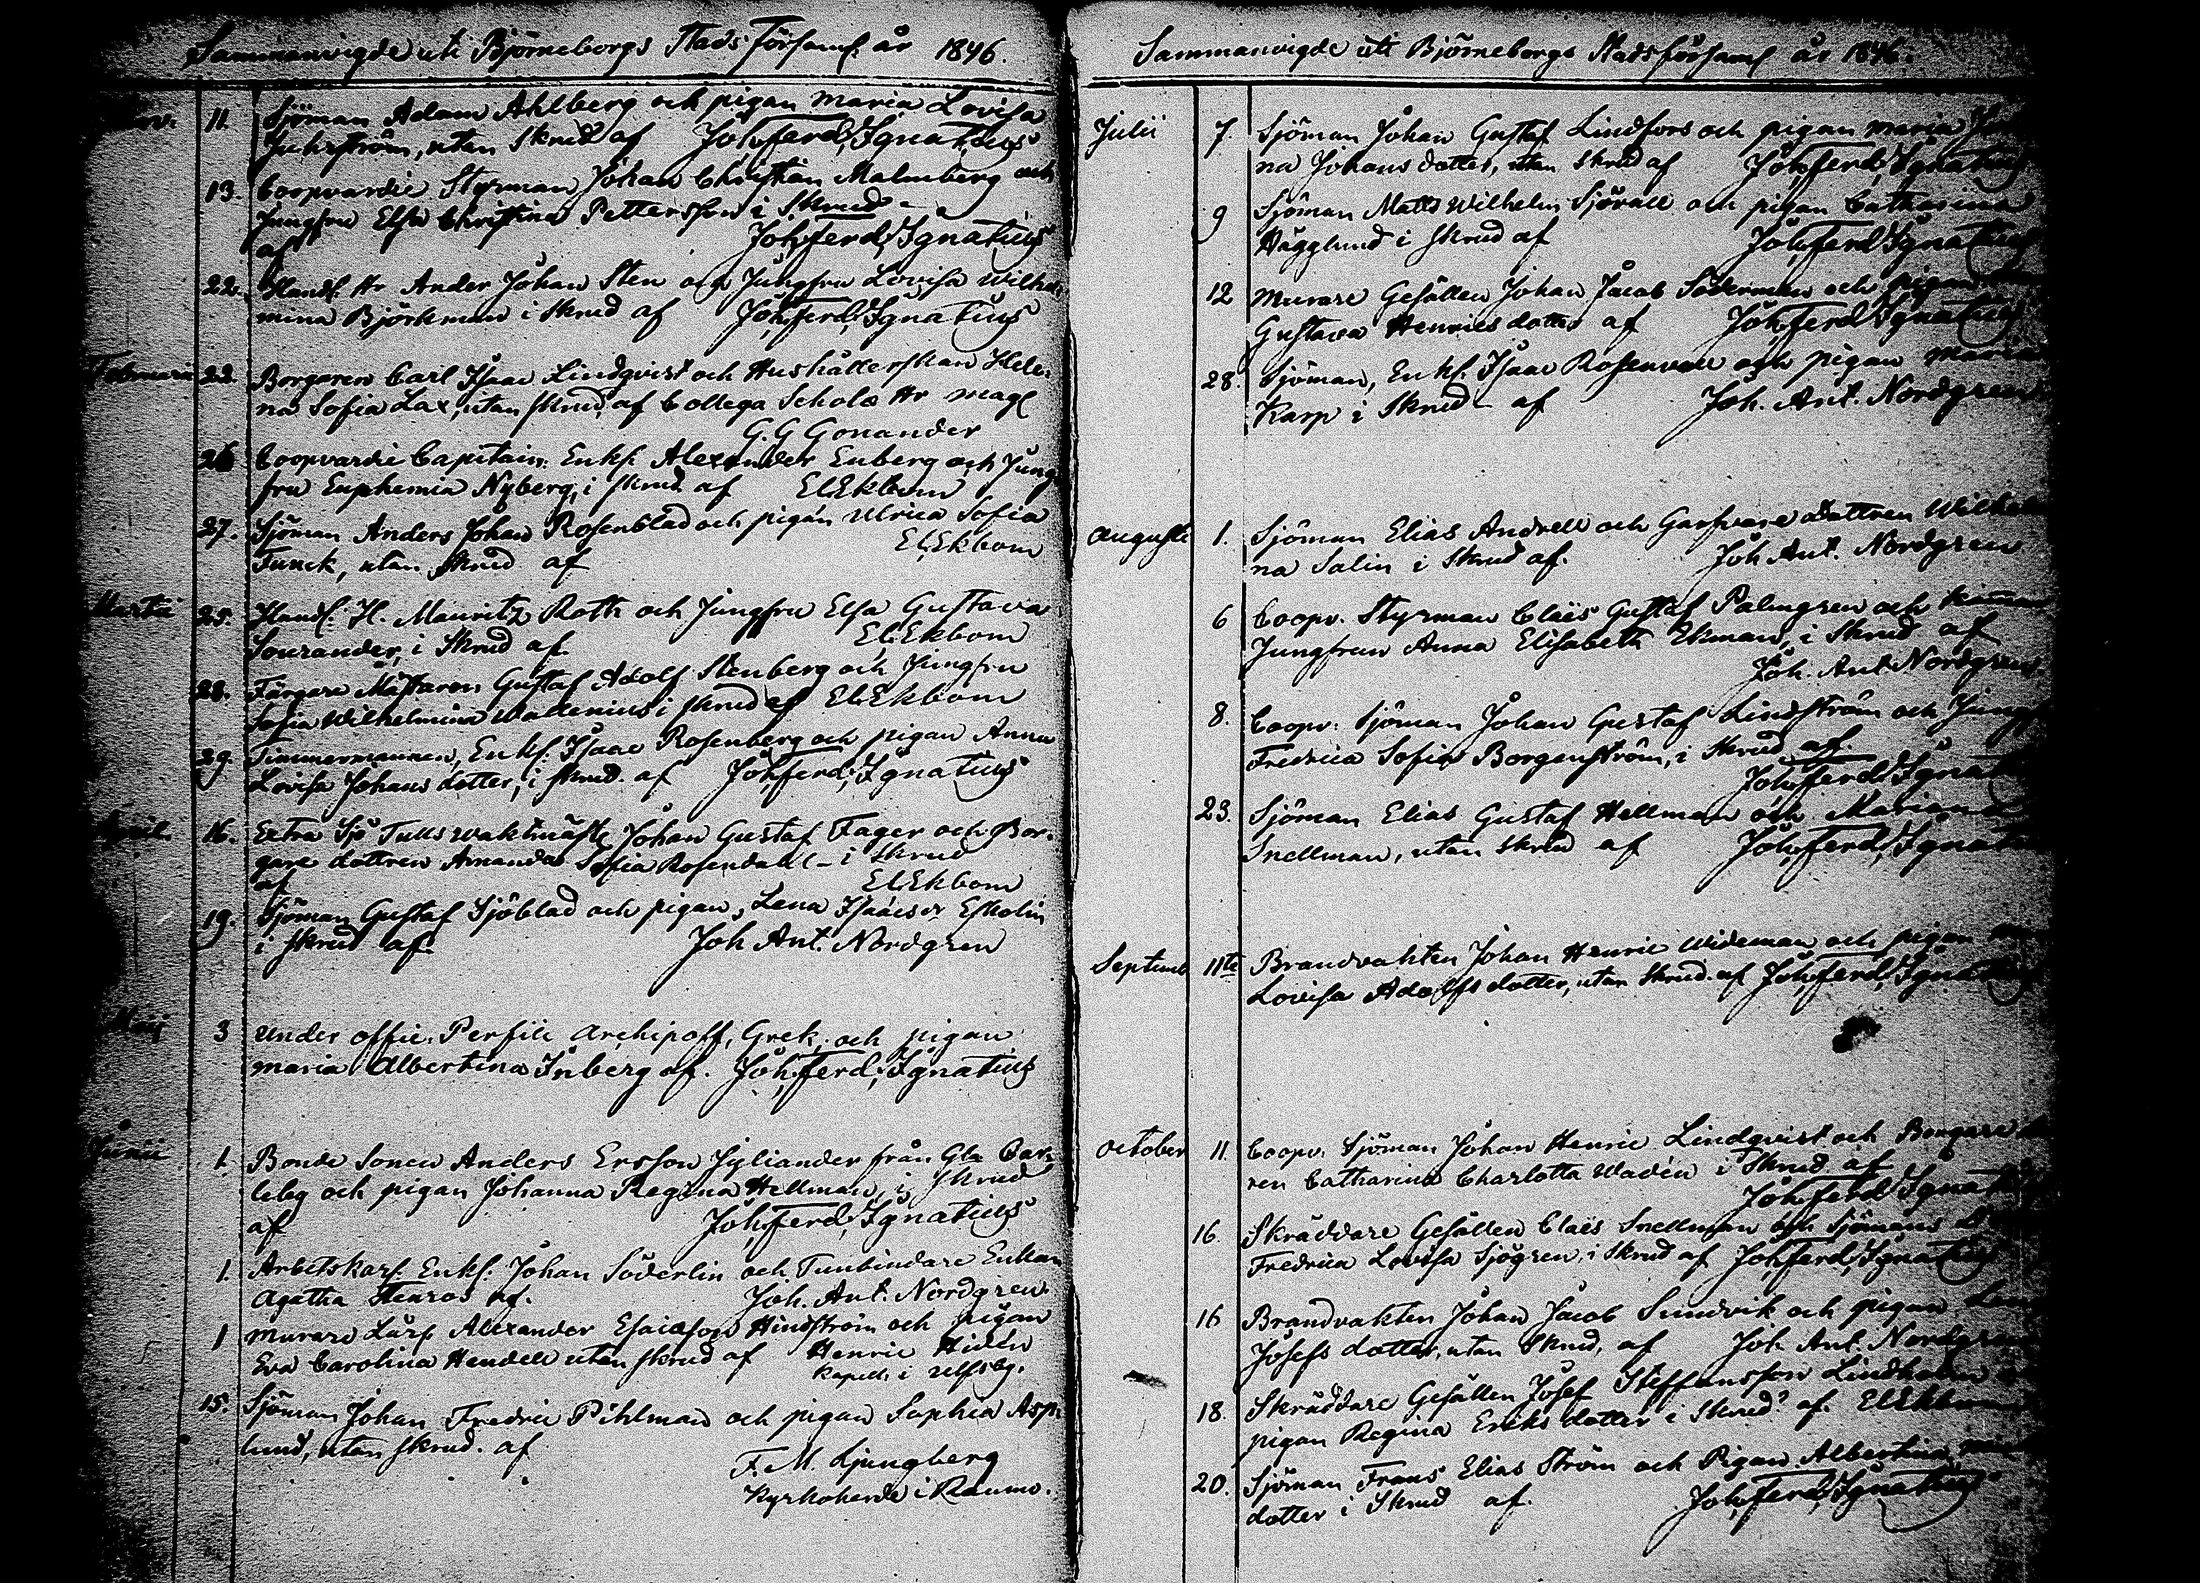 Sammanvigde uti Björneborgs Stads Församl. år 1846.
11. Sjöman Adam Ahlberg och pigan Maria Lovisa
utan Skrud af Joh. Ferd. Ignatius
13. Coopvardie Styrman Johan Christian Malmberg och
Jungfru Elsa Christina Pettersson i Skrud
af Joh. Ferd. Ignatius
22. Handl. Hr Ander Johan Sten och Jungfru Lovisa Wilhel-
mina Björkman i Skrud af Joh. Ferd. Ignatius
Februarii 22. Borgaren Carl Isaac Lindqvist och Hushållerskan Hele-
na Sofia Lax, utan skrud af Collega Scholæ Hr Mag.
G. G Gonander
26 Coopvardie Capitain. Enkl. Alexander Enberg och Jung-
fru Euphemia Nyberg, i skrud af El. Ekbom
27. Sjöman Anders Johan Rosenblad och pigan Ulrica Sofia
Funck, utan Skrud af El. Ekbom
Martii 25. Handl. H. Mauritz Roth och Jungfru Elsa Gustava
Sourander, i Skrud af El. Ekbom
28. Färgare Mästaren Gustaf Adolf Stenberg och Jungfru
Sofia Wilhelmina Wallenius i skrud af El. Ekbom
29. Timmermannen, Enkl. Isaac Rosenberg och pigan Anna
Lovisa Johansdotter, i skrud af Joh. Ferd. Ignatius
April 16. Extra Sjö Tulls Johan Gustaf Fager och Bor-
gare dottren Amanda Sofia Rosendahl i Skrud
af El. Ekbom
19. Sjöman Gustaf Sjöblad och pigan Lena Eskolin
i skrud af Joh Ant. Nordgren
Maij 3 Under offic. Perfili Archipoff, Grek, och pigan
Maria Albertina Inberg af. Joh. Ferd. Ignatius
Junii 1. Bonde Sonen Anders Ersson från Gla Car-
leby och pigan Johanna Regina Hellman, i Skrud
af Joh. Ferd. Ignatius
1. Arbetskarl. Enkl. Johan Söderlin och Tunbindare Enkan
Agatha Stenros af. Joh. Ant. Nordgren
1 Murare Lärl. Alexander Esaiæson Hindström och pigan
Eva Carolina Hendell utan skrud af Henric Hidén
Kapell. i Ulfsby.
15. Sjöman Johan Fredric Pihlman och pigan Sophia Asp-
lund, utan skrud. af
F. M. Ljungberg
Kyrkoherde i Raumo.
Sammanvigde uti Björneborgs Stadsförsaml år 1846.
Julii 7. Sjöman Johan Gustaf Lindfors och pigan Maria
na Johansdotter, utan skrud af Joh. Ferd. Ignatius
9 Sjöman Matts Wilhelm Sjövall och pigan Catharina
Hägglund i skrud af Joh. Ferd. Ignatius
12 Murare Gesällen Johan Jacob Söderman och pigan
Gustava Henricsdotter af Joh. Ferd. Ignatius
28. Sjöman, Enkl. Isaac Rosenvall och pigan Maria
Karp i Skrud af Joh. Ant. Nordgren
Augusti 1. Sjöman Elias Andrell och Garfvare dottren Wilhelmi-
na Salin i Skrud af. Joh Ant. Nordgren
6 Coopv. Styrman Claës Gustaf Palmgren och
Jungfrun Anna Elisabeth Ekman, i Skrud af
Joh. Ant. Nordgren.
8. Coopv. Sjöman Johan Gustaf Lindström och Jungf.
Fredrica Sofia Borgenström, i Skrud af.
Joh. Ferd. Ignatius
23. Sjöman Elias Gustaf Hellman och Mariana
Snellman, utan skrud af Joh. Ferd. Ignatius
Septemb 11te Brandvakten Johan Henric Wideman och pigan
Lovisa Adolfsdotter, utan Skrud. af Joh. Ferd. Ignatius
October 11. Coopv. Sjöman Johan Henric Lindqvist och Borgare
ren Catharina Charlotta Wadén i Skrud af
Joh. Ferd. Ignatius
16. Skräddare Gesällen Claës Snellman och Sjömans
Fredrica Lovisa Sjögren, i Skrud af Joh. Ferd. Ignatius
16 Brandvakten Johan Jacob Sundvik och pigan
Josefsdotter, utan Skrud, af Joh. Ant. Nordgren
18. Skräddare Gesällen Josef Steffansson Lindholm
pigan Regina Eriksdotter i Skrud af El. Ekbom
20. Sjöman Frans Elias Ström och Pigan Albertina
dotter i Skrud af. Joh. Ferd. Ignatius